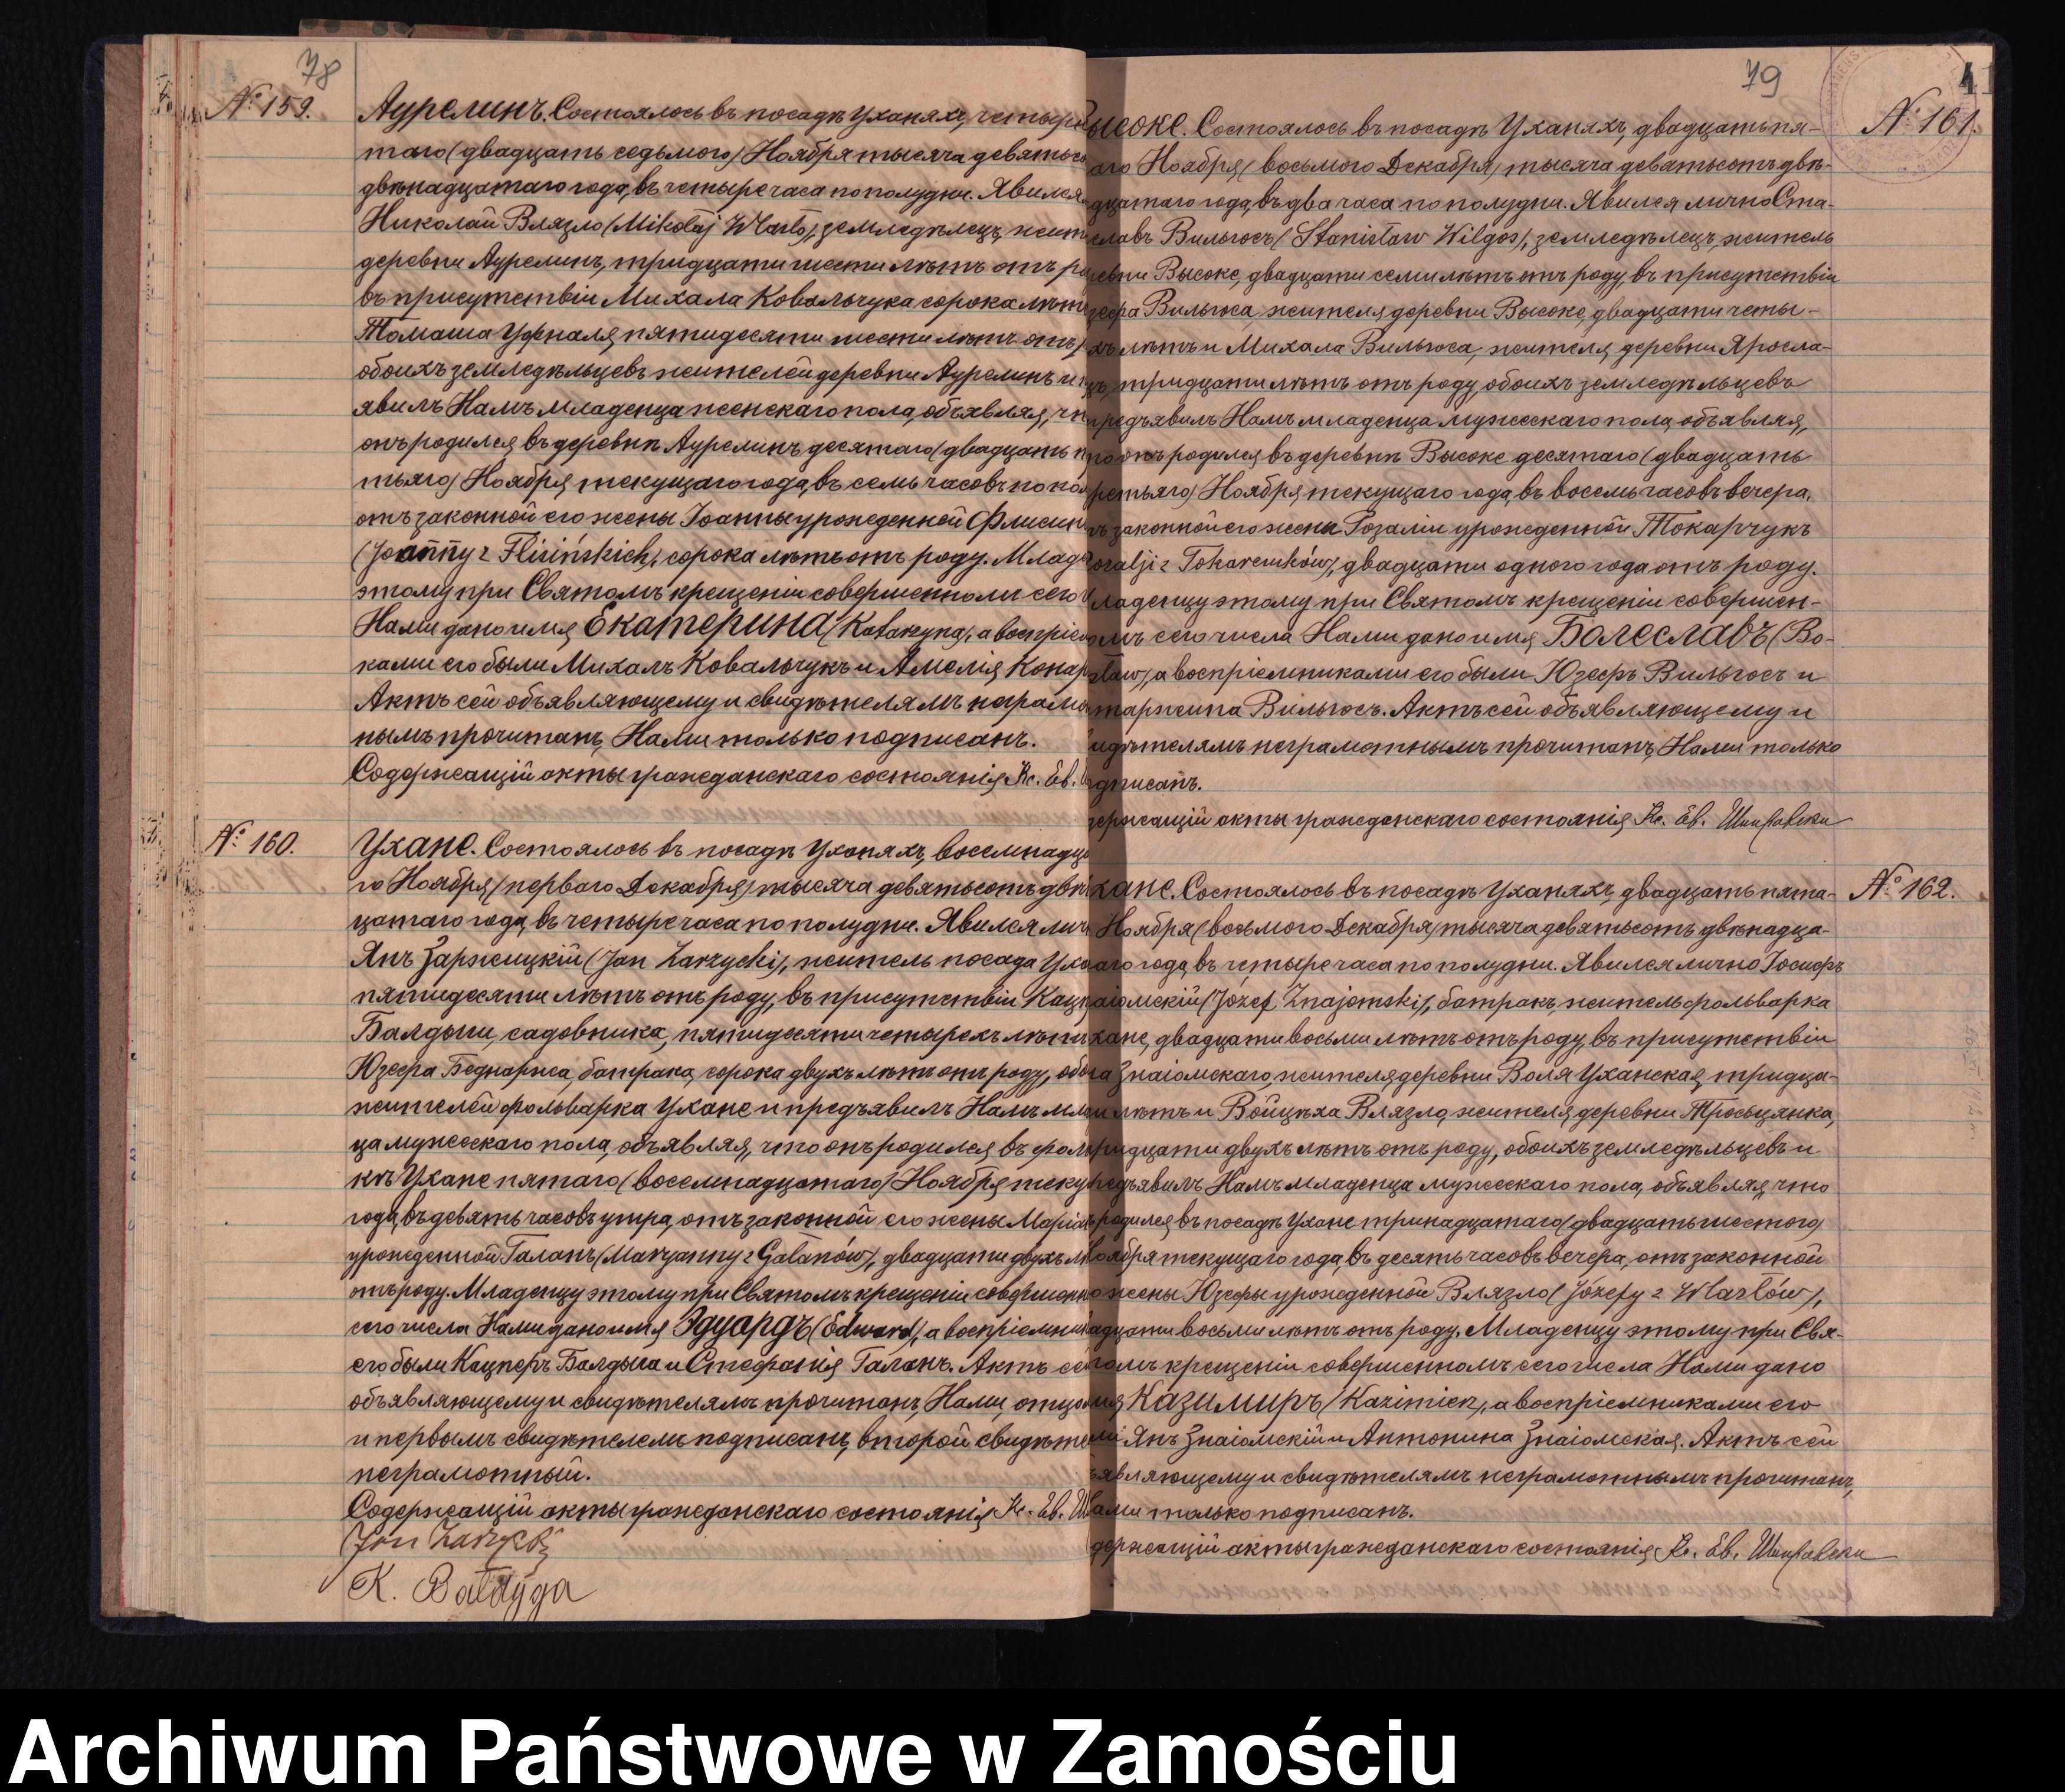 78
№ 159.
Аурелинъ. Состоялось въ посадѣ Уханяхъ, четырн
таго (двадцать седьмого) Ноября тысяча девятьсо
двѣнадцатаго года, въ четыре часа по полудни. Явился
Николай Влязло (Mikołaj Wlazło), земледѣлецъ, жит
деревни Аурелинъ, тридцати шести лѣтъ отъ ро
въ присутствіи Михала Ковальчука сорока лѣтъ
Томаша пятидесяти шести лѣтъ отъ
обоихъ земледѣльцевъ жителей деревни Аурелинъ и
явилъ Намъ младенца женскаго пола, объявляя, чт
онъ родился въ деревнѣ Аурелинъ десятаго (двадцать т
тьяго) Ноября текущаго года, въ семь часовъ по по
отъ законной его жены Іоанны урожденной Флисин
(Joanny z Flisińskich), сорока лѣтъ отъ роду. Млад
этому при Святомъ крещеніи совершенномъ сего
Нами дано имя Екатерина (Katarzyna), а воспріе
ками его были Михалъ Ковальчукъ и Амелія Конар
Актъ сей объявляющему и свидѣтелямъ неграмо
нымъ прочитанъ, Нами только подписанъ.
Содержащій акты гражданскаго состоянія Кс. Ев.
№ 160.
Ухане. Состоялось въ посадѣ Уханяхъ, восемнадца
го Ноября (перваго Декабря) тысяча девятьсотъ двѣ
цатаго года, въ четыре часа по полудни. Явился лич
Янъ Заржицкій (Jan Zarzycki), житель посада Уха
пятидесяти лѣтъ отъ роду, въ присутствіи Кацп
Балдыги, садовника, пятидесяти четырехъ лѣтъ
Юзефа Беднаржа, батрака, сорока двухъ лѣтъ отъ роду, обо
жителей фольварка Ухане и предъявилъ Намъ мла
ца мужескаго пола, объявляя, что онъ родился въ фоль
кѣ Ухане пятаго (восемнадцатаго) Ноября теку
года, въ девять часовъ утра, отъ законной его жены Маріан
урожденной Галанъ (Maryanny z Gałanów), двадцати двухъ л
отъ роду. Младенцу этому при Святомъ крещеніи совершенно
сего числа Нами дано имя Эдуардъ (Edward), а воспріемни
его были Кацперъ Балдыга и Стефанія Галанъ. Актъ се
объявляющему и свидѣтелямъ прочитанъ, Нами, отцо
и первымъ свидѣтелемъ подписанъ, второй свидѣте
неграмотный.
Содержащій акты гражданскаго состоянія Кс. Ев.
Jan Zarzycki
K. Bałdyga
79
№ 161.
ысоке. Состоялось въ посадѣ Уханяхъ, двадцать пя-
аго Ноября (восьмого Декабря) тысяча девятьсотъ двѣ-
дцатаго года, въ два часа по полудни. Явился лично Ста-
славъ Вильгосъ (Stanisław Wilgos), земледѣлецъ, житель
ревни Высоке, двадцати семи лѣтъ отъ роду, въ присутствіи
зефа Вильгоса, жителя деревни Высоке, двадцати четы-
хъ лѣтъ и Михала Вильгоса, жителя деревни Яросла-
цъ, тридцати лѣтъ отъ роду, обоихъ земледѣльцевъ
предъявилъ Намъ младенца мужескаго пола, объявляя,
то онъ родился въ деревнѣ Высоке десятаго (двадцать
ретьяго) Ноября, текущаго года, въ восемь часовъ вечера,
тъ законной его жены Розаліи урожденной Токарчукъ
ozalji z Tokarczuków), двадцати одного года отъ роду.
ладенцу этому при Святомъ крещеніи совершен-
омъ сего числа Нами дано имя Болеславъ (Bo-
sław), а воспріемниками его были Юзефъ Вильгосъ и
таржина Вильгосъ. Актъ сей объявляющему и
идѣтелямъ неграмотнымъ прочитанъ, Нами только
дписанъ.
держащій акты гражданскаго состоянія Кс. Ев.
№ 162.
хане. Состоялось въ посадѣ Уханяхъ, двадцать пята-
Ноября (восьмого Декабря) тысяча девятьсотъ двѣнадца-
аго года, въ четыре часа по полудни. Явился лично Іосифъ
аіомскій (Józef Znajomski), батракъ, житель фольварка
хане, двадцати восьми лѣтъ отъ роду, въ присутствіи
га Знаіомскаго, жителя деревни Воля Уханская, тридца-
и лѣтъ и Войцѣха Влязло, жителя деревни Тросьцянка,
ридцати двухъ лѣтъ отъ роду, обоихъ земледѣльцевъ и
редъявилъ Намъ младенца мужескаго пола, объявляя, что
родился въ посадѣ Ухане тринадцатаго (двадцать шестого)
оября текущаго года, въ десять часовъ вечера, отъ законной
о жены Юзефы урожденной Влязло (Józefy z Wlazłów),
адцати восьми лѣтъ отъ роду. Младенцу этому при Свя-
томъ крещеніи совершенномъ сего числа Нами дано
мя Казимиръ (Kazimierz), а воспріемниками его
ли Янъ Знаіомскій и Антонина Знаіомская. Актъ сей
ъявляющему и свидѣтелямъ неграмотнымъ прочитанъ,
ами только подписанъ.
держащій акты гражданскаго состоянія Кс. Ев.
Archiwum Państwowe w Zamościu